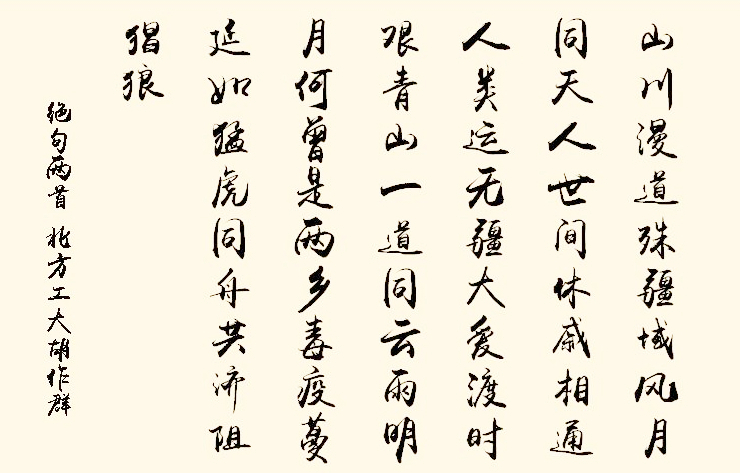 山川漫道殊疆域风月
同天人世间休戚相通
人类运无疆大爱渡时
艰青山一道同云雨明
月何曾是两乡毒疫蔓
延如猛虎同舟共济阻
猖狼
绝句两首 北方工大胡作群